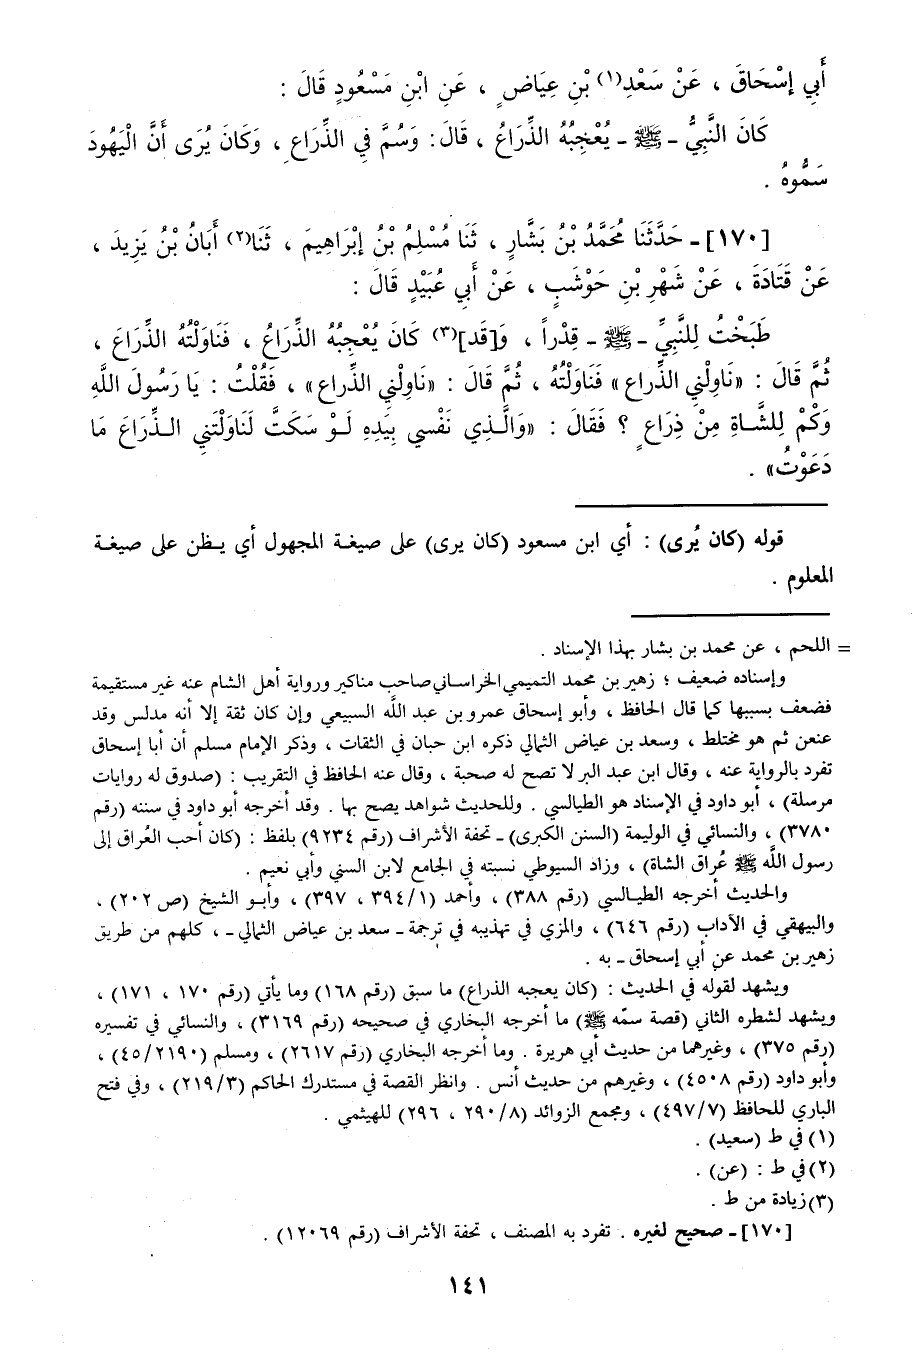 أَبِي إِسْحَاقَ ، عَنْ سَعْدِ(١) بْنِ عِيَاضٍ ، عَنِ ابْنِ مَسْعُودٍ قَالَ :
كَانَ النَّبِيُّ ـ ﷺ ـ يُعْجِبُهُ الذِّرَاعُ ، قَالَ : وَسُمَّ فِي الذِّرَاعِ ، وَكَانَ يُرَى أَنَّ الْيَهُودَ
سَمُّوهُ .
[١٧٠] ـ حَدَّثَنَا مُحَمَّدُ بْنُ بَشَّارٍ ، ثَنَا مُسْلِمُ بْنُ إِبْرَاهِيمَ ، ثَنَا(٢) أَبَانُ بْنُ يَزِيدَ ،
عَنْ قَتَادَةَ ، عَنْ شَهْرِ بْنِ حَوْشَبٍ ، عَنْ أَبِي عُبَيْدٍ قَالَ :
طَبَخْتُ لِلنَّبِيِّ ـ ﷺ ـ قِدْراً ، وَ[قَد](٣) كَانَ يُعْجِبُهُ الذِّرَاعُ ، فَنَاوَلْتُهُ الذِّرَاعَ ،
ثُمَّ قَالَ : «نَاوِلْنِي الذِّرَاعَ» فَنَاوَلْتُهُ ، ثُمَّ قَالَ : «نَاوِلْنِي الذِّرَاع» ، فَقُلْتُ : يَا رَسُولَ اللَّهِ
وَكَمْ لِلشَّاةِ مِنْ ذِرَاعٍ ؟ فَقَالَ : «وَالَّذِي نَفْسِي بِيَدِهِ لَوْ سَكَتَّ لَنَاوَلْتَنِي الذِّرَاعَ مَا
دَعَوْتُ» .
قوله (كان يُرى) : أي ابن مسعود (كان يرى) على صيغة المجهول أي يظن على صيغة
المعلوم .
= اللحم ، عن محمد بن بشار بهذا الإسناد .
وإسناده ضعيف ؛ زهير بن محمد التميمي الخراساني صاحب مناكير ورواية أهل الشام عنه غير مستقيمة
فضعف بسببها كما قال الحافظ ، وأبو إسحاق عمرو بن عبد اللَّه السبيعي وإن كان ثقة إلا أنه مدلس وقد
عنعن ثم هو مختلط ، وسعد بن عياض الثمالي ذكره ابن حبان في الثقات ، وذكر الإمام مسلم أن أبا إسحاق
تفرد بالرواية عنه ، وقال ابن عبد البر لا تصح له صحبة ، وقال عنه الحافظ في التقريب : (صدوق له روايات
مرسلة) ، أبو داود في الإسناد هو الطيالسي . وللحديث شواهد يصح بها . وقد أخرجه أبو داود في سننه (رقم
٣٧٨٠) ، والنسائي في الوليمة (السنن الكبرى) ـ تحفة الأشراف (رقم ٩٢٣٤) بلفظ : (كان أحب العُراق إلى
رسول اللَّه ﷺ عُراق الشاة) ، وزاد السيوطي نسبته في الجامع لابن السني وأبي نعيم .
والحديث أخرجه الطيالسي (رقم ٣٨٨) ، وأحمد (٣٩٤/١ ، ٣٩٧) ، وأبو الشيخ (ص ٢٠٢) ،
والبيهقي في الآداب (رقم ٦٤٦) ، والمزي في تهذيبه في ترجمة ـ سعد بن عياض الثمالي ـ ، كلهم من طريق
زهير بن محمد عن أبي إسحاق ـ به .
ويشهد لقوله في الحديث : (كان يعجبه الذراع) ما سبق (رقم ١٦٨) وما يأتي (رقم ١٧٠ ، ١٧١) ،
ويشهد لشطره الثاني (قصة سمّه ﷺ) ما أخرجه البخاري في صحيحه (رقم ٣١٦٩) ، والنسائي في تفسيره
(رقم ٣٧٥) ، وغيرهما من حديث أبي هريرة . وما أخرجه البخاري (رقم ٢٦١٧) ، ومسلم (٤٥/٢١٩٠) ،
وأبو داود (رقم ٤٥٠٨) ، وغيرهم من حديث أنس . وانظر القصة في مستدرك الحاكم (٢١٩/٣) ، وفي فتح
الباري للحافظ (٤٩٧/٧) ، ومجمع الزوائد (٢٩٠/٨ ، ٢٩٦) للهيثمي .
(١) في ط (سعيد) .
(٢) في ط : (عن) .
(٣) زيادة من ط .
[١٧٠] ـ صحيح لغيره . تفرد به المصنف ، تحفة الأشراف (رقم ١٢٠٦٩) .
١٤١